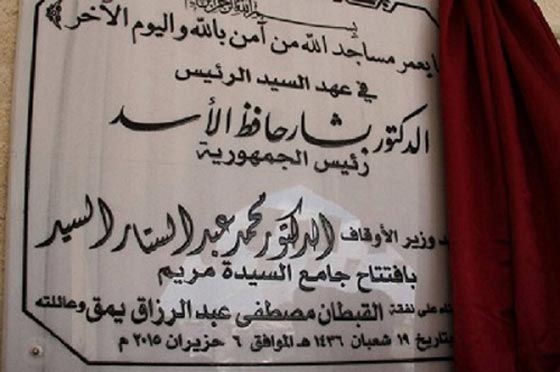 بسم الله الرحمن الرحيم
يعمر مساجد الله من آمن بالله واليوم الآخر
في عهد السيد الرئيس
الدكتور بشار حافظ الأسد
رئيس الجمهورية
وزير الأوقاف الدكتور محمد عبد الستار السيد
بافتتاح جامع السيدة مريم
على نفقة القبطان مصطفى عبد الرزاق يمق وعائلته
بتاريخ ١٩ شعبان ١٤٣٦ هـ الموافق ٦ حزيران ٢٠١٥ م